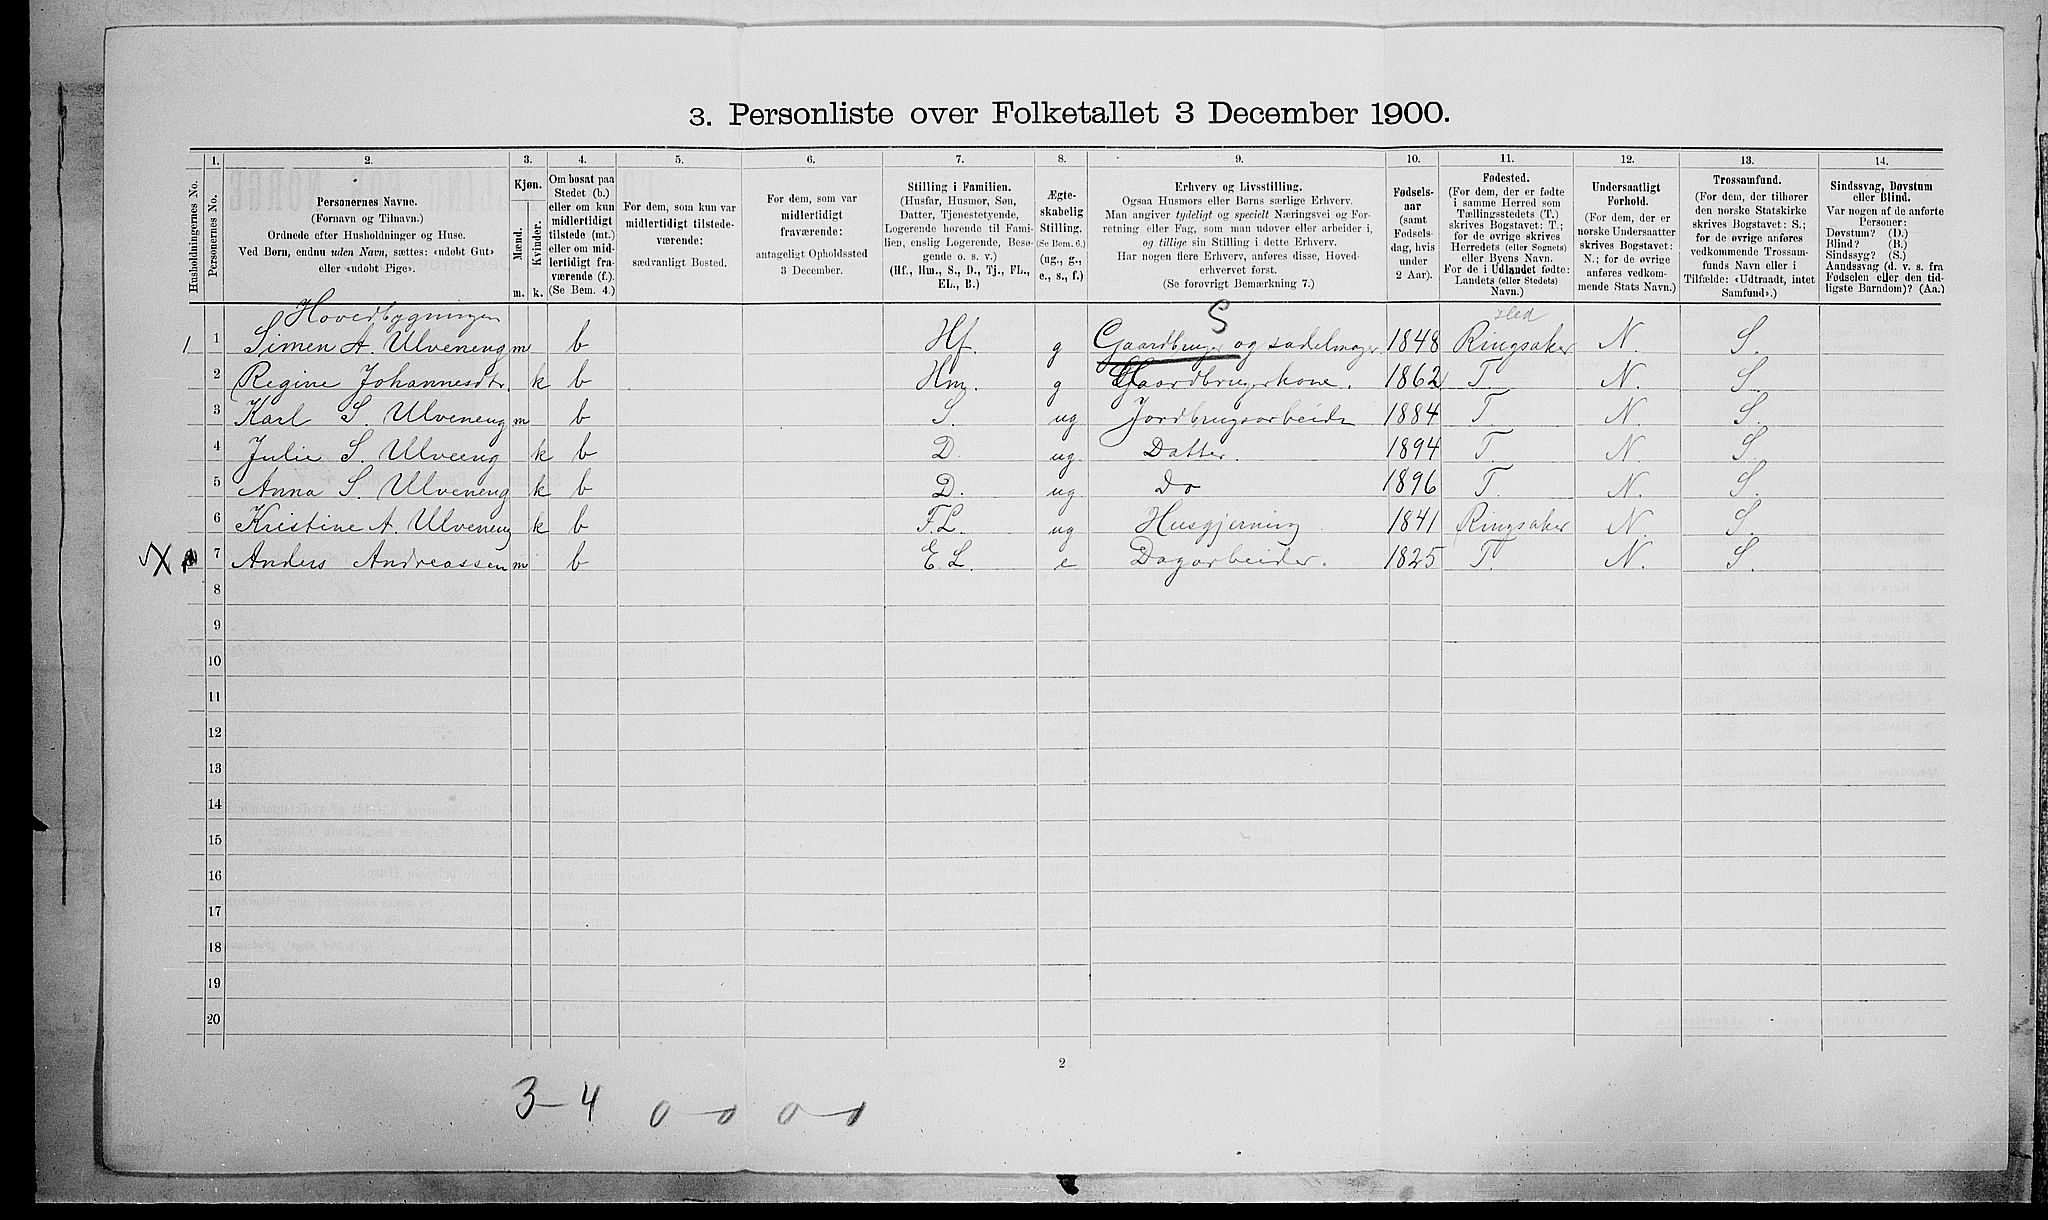 3. Personliste over Folketallet 3 December 1900.
Husholdningernes No.
1.
Personernes No.
2.
Personernes Navne.
(Fornavn og Tilnavn.)
Ordnede efter Husholdninger og Huse.
Ved Børn, endnu uden Navn, sættes: «udøbt Gut»
eller «udøbt Pige».
3.
Kjøn.
Mænd.
Kvinder.
m. k.
4.
Om bosat paa
Stedet (b.)
eller om kun
midlertidigt
tilstede (mt.)
eller om mid-
lertidigt fra-
værende (f.).
(Se Bem. 4.)
5.
For dem, som kun var
midlertidigt tilstede-
værende:
sædvanligt Bosted.
6.
For dem, som var
midlertidigt
fraværende:
antageligt Opholdssted
3 December.
7.
Stilling i Familien.
(Husfar, Husmor, Søn,
Datter, Tjenestetyende,
Logerende hørende til Fami-
lien, enslig Logerende, Besø-
gende o. s. v.)
(Hf., Hm., S., D., Tj., FL.,
EL., B.)
8.
Ægte-
skabelig
Stilling.
(Se Bem. 6.)
(ug., g.,
e., s., f.)
9.
Erhverv og Livsstilling.
Ogsaa Husmors eller Børns særlige Erhverv.
Man angiver tydeligt og specielt Næringsvei og For-
retning eller Fag, som man udøver eller arbeider i,
og tillige sin Stilling i dette Erhverv.
Har nogen flere Erhverv, anføres disse, Hoved-
erhvervet først.
(Se forøvrigt Bemærkning 7.)
10.
Fødsels-
aar
(samt
Fødsels-
dag, hvis
under
2 Aar).
11.
Fødested.
(For dem, der er fødte
i samme Herred som
Tællingsstedets (T.)
skrives Bogstavet: T.;
for de øvrige skrives
Herredets (eller Sognets)
eller Byens Navn.
For de i Udlandet fødte:
Landets (eller Stedets)
Navn.)
12.
Undersaatligt
Forhold.
(For dem, der er
norske Undersaatter
skrives Bogstavet:
N.; for de øvrige
anføres vedkom-
mende Stats Navn.)
13.
Trossamfund.
(For dem, der tilhører
den norske Statskirke
skrives Bogstavet: S.;
for de øvrige anføres
vedkommende Trossam-
funds Navn eller i
Tilfælde: «Udtraadt, intet
Samfund».)
14.
Sindssvag, Døvstum
eller Blind.
Var nogen af de anførte
Personer:
Døvstum? (D.)
Blind? (B.)
Sindssyg? (S.)
Aandssvag (d. v. s. fra
Fødselen eller den tid-
ligste Barndom)? (Aa.)
Hovedbygningen S
1 1 Simen A. Ulveneng m b Hf. g Gaardbruger og sadelmager 1848 Ringsaker N. S.
2 Regine Johannesdtr. k b Hm. g Gaardbrugerkone. 1862 T. N. S.
3 Karl S. Ulveneng m b S. ug Jordbrugsarbeide 1884 T N. S.
4 Julie S. Ulveeng k b D. ug. Datter. 1894 T. N. S.
5 Anna S. Ulveneng k b D. ug Do 1896 T. N. S.
6 Kristine A. Ulveneng k b F.L. ug Husgjerning. 1841 Ringsaker N. S.
X 7 Anders Andreassen m b E.L. e Dagarbeider. 1825 T. N. S.
8
9
10
11
12
13
14
15
16
17
18
19
20
2
3-4 0-0 0-0